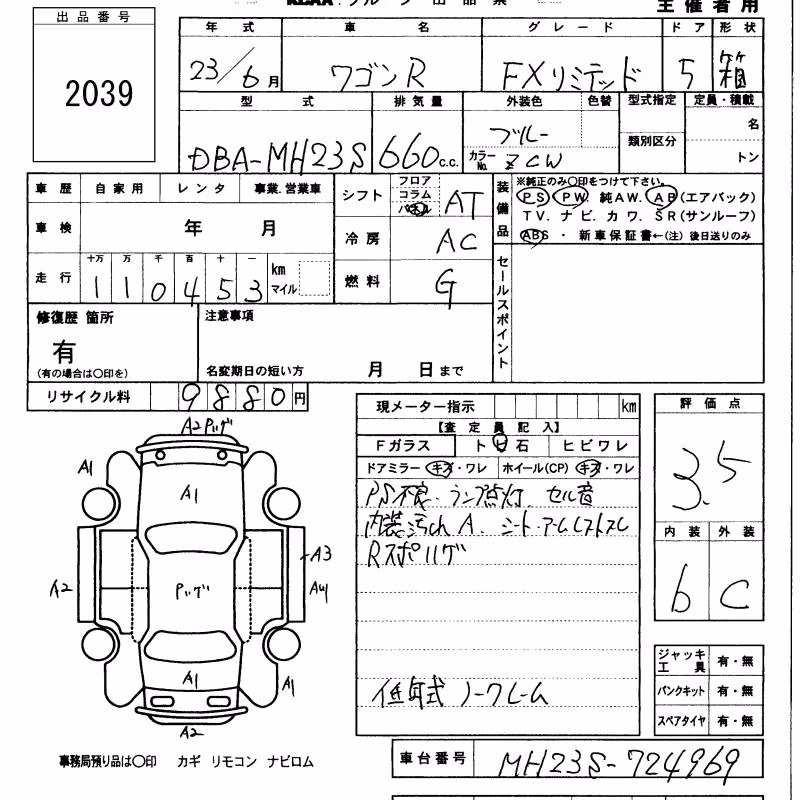 主催者用
出品番号
2039
年式 車名 グレード ドア 形状
23/6月 ワゴンR FXリミテッド 5 箱
型式 排気量 外装色 色替 型式指定 定員・積載
DBA-MH23S 660c.c. ブルー 類別区分 名
カラーNo. ZCW トン
車歴 自家用 レンタ 事業.営業車
車検 年 月
走行 十万 万 千 百 十 一 km マイル
1 1 0 4 5 3
シフト フロア コラム パネル AT
冷房 AC
燃料 G
装備品 ※純正のみ○印をつけて下さい。
PS PW 純AW. AB(エアバック)
TV. ナビ. カワ. SR(サンルーフ)
ABS ・ 新車保証書←(注) 後日送りのみ
セールスポイント
修復歴 箇所 注意事項
有
(有の場合は○印を) 名変期日の短い方 月 日まで
リサイクル料 9880円
A2 Pハゲ
A1
A1
A3
A2 Pハゲ AW
A1 A1
A2
事務局預り品は○印 カギ リモコン ナビロム
現メーター指示 km
【査定員記入】
Fガラス トビ石 ヒビワレ
ドアミラー キズ・ワレ ホイール(CP) キズ・ワレ
PS不良. ランプ点灯. セル音
内装汚れ A. シート.アームレストスレ
Rスポハゲ
低年式 ノークレーム
評価点
3.5
内装 外装
b C
ジャッキ工具 有・無
パンクキット 有・無
スペアタイヤ 有・無
車台番号 MH23S-724969